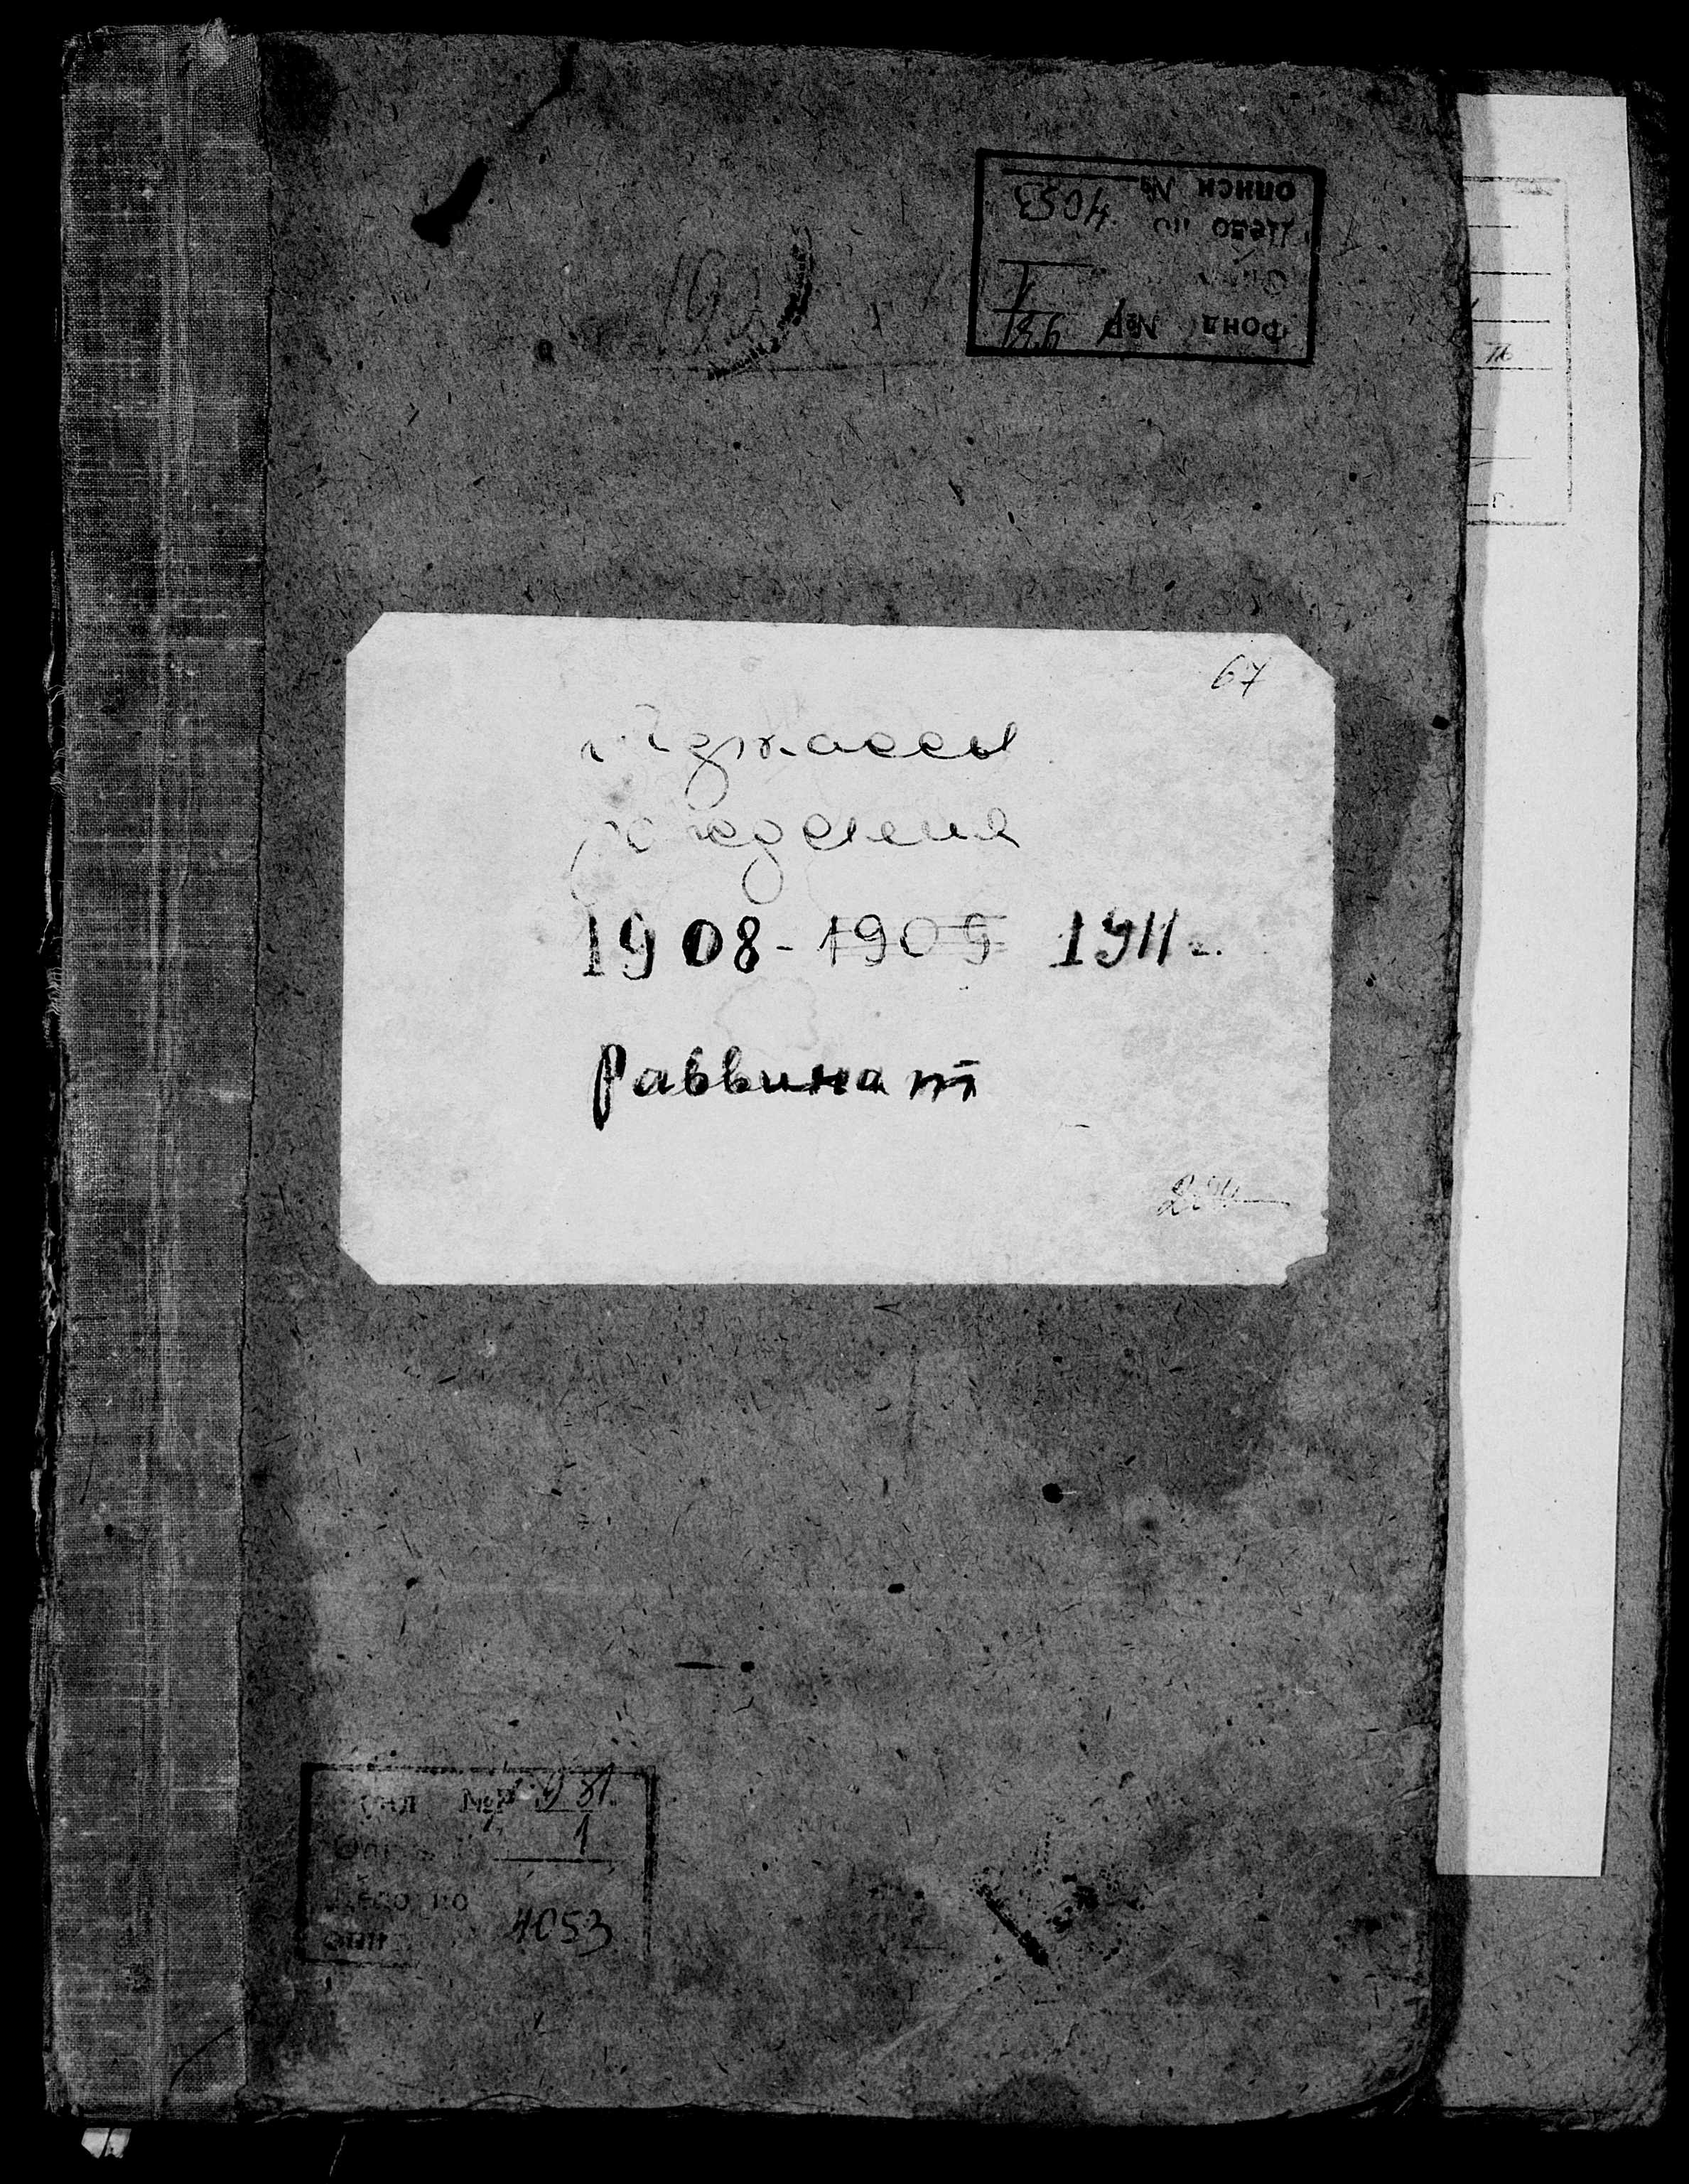 Фонд №Р 981
I
Дело по
описи № 4053
67
Черкассы
рождения
1908 - 1909 1911 г.
Раввинат
Фонд №Р 981
Опись № 1
Дело по
описи 4053